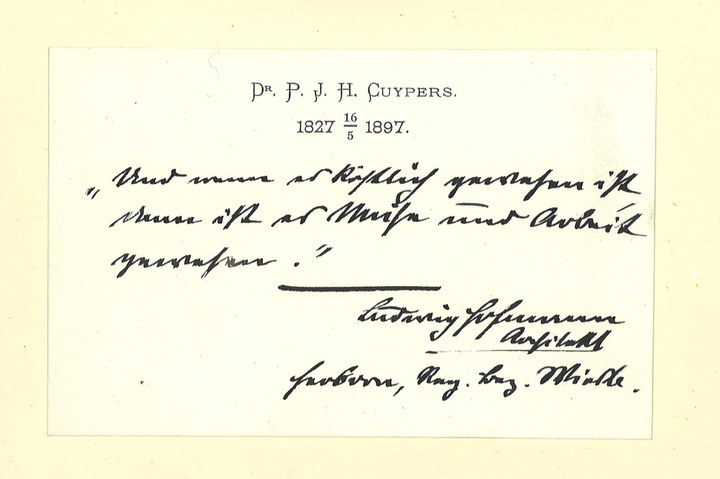 Dr. P. J. H. Cuypers.
1827 16/5 1897.
„Und wenn es köstlich gewesen ist
dann ist es Mühe und Arbeit
gewesen."
Ludwig Hofmann
Architekt
Herborn, Reg. Bez. Wiesb.